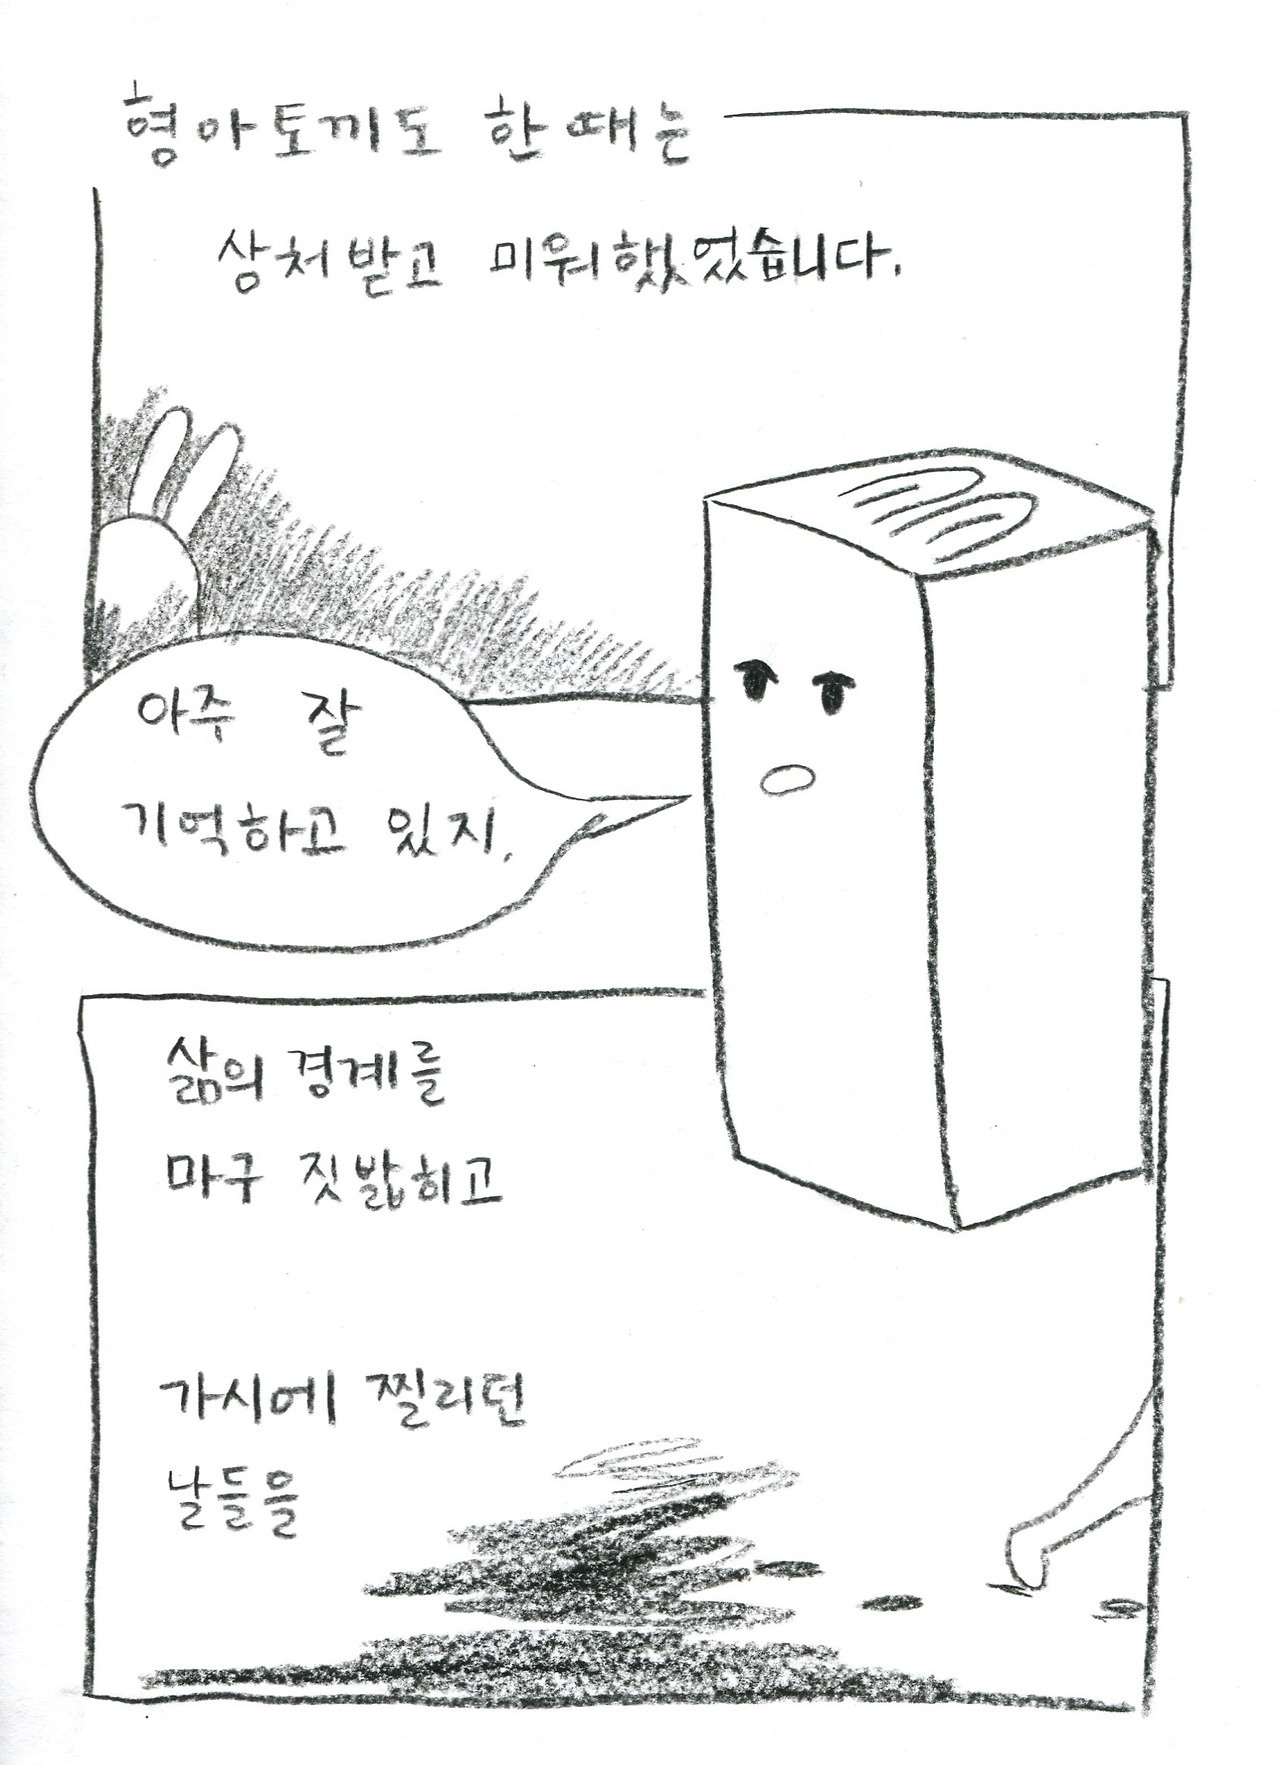 형아토끼도 한때는
상처받고 미워했었습니다.
아주 잘
기억하고 있지.
삶의 경계를
마구 짓밟히고
가시에 찔리던
날들을